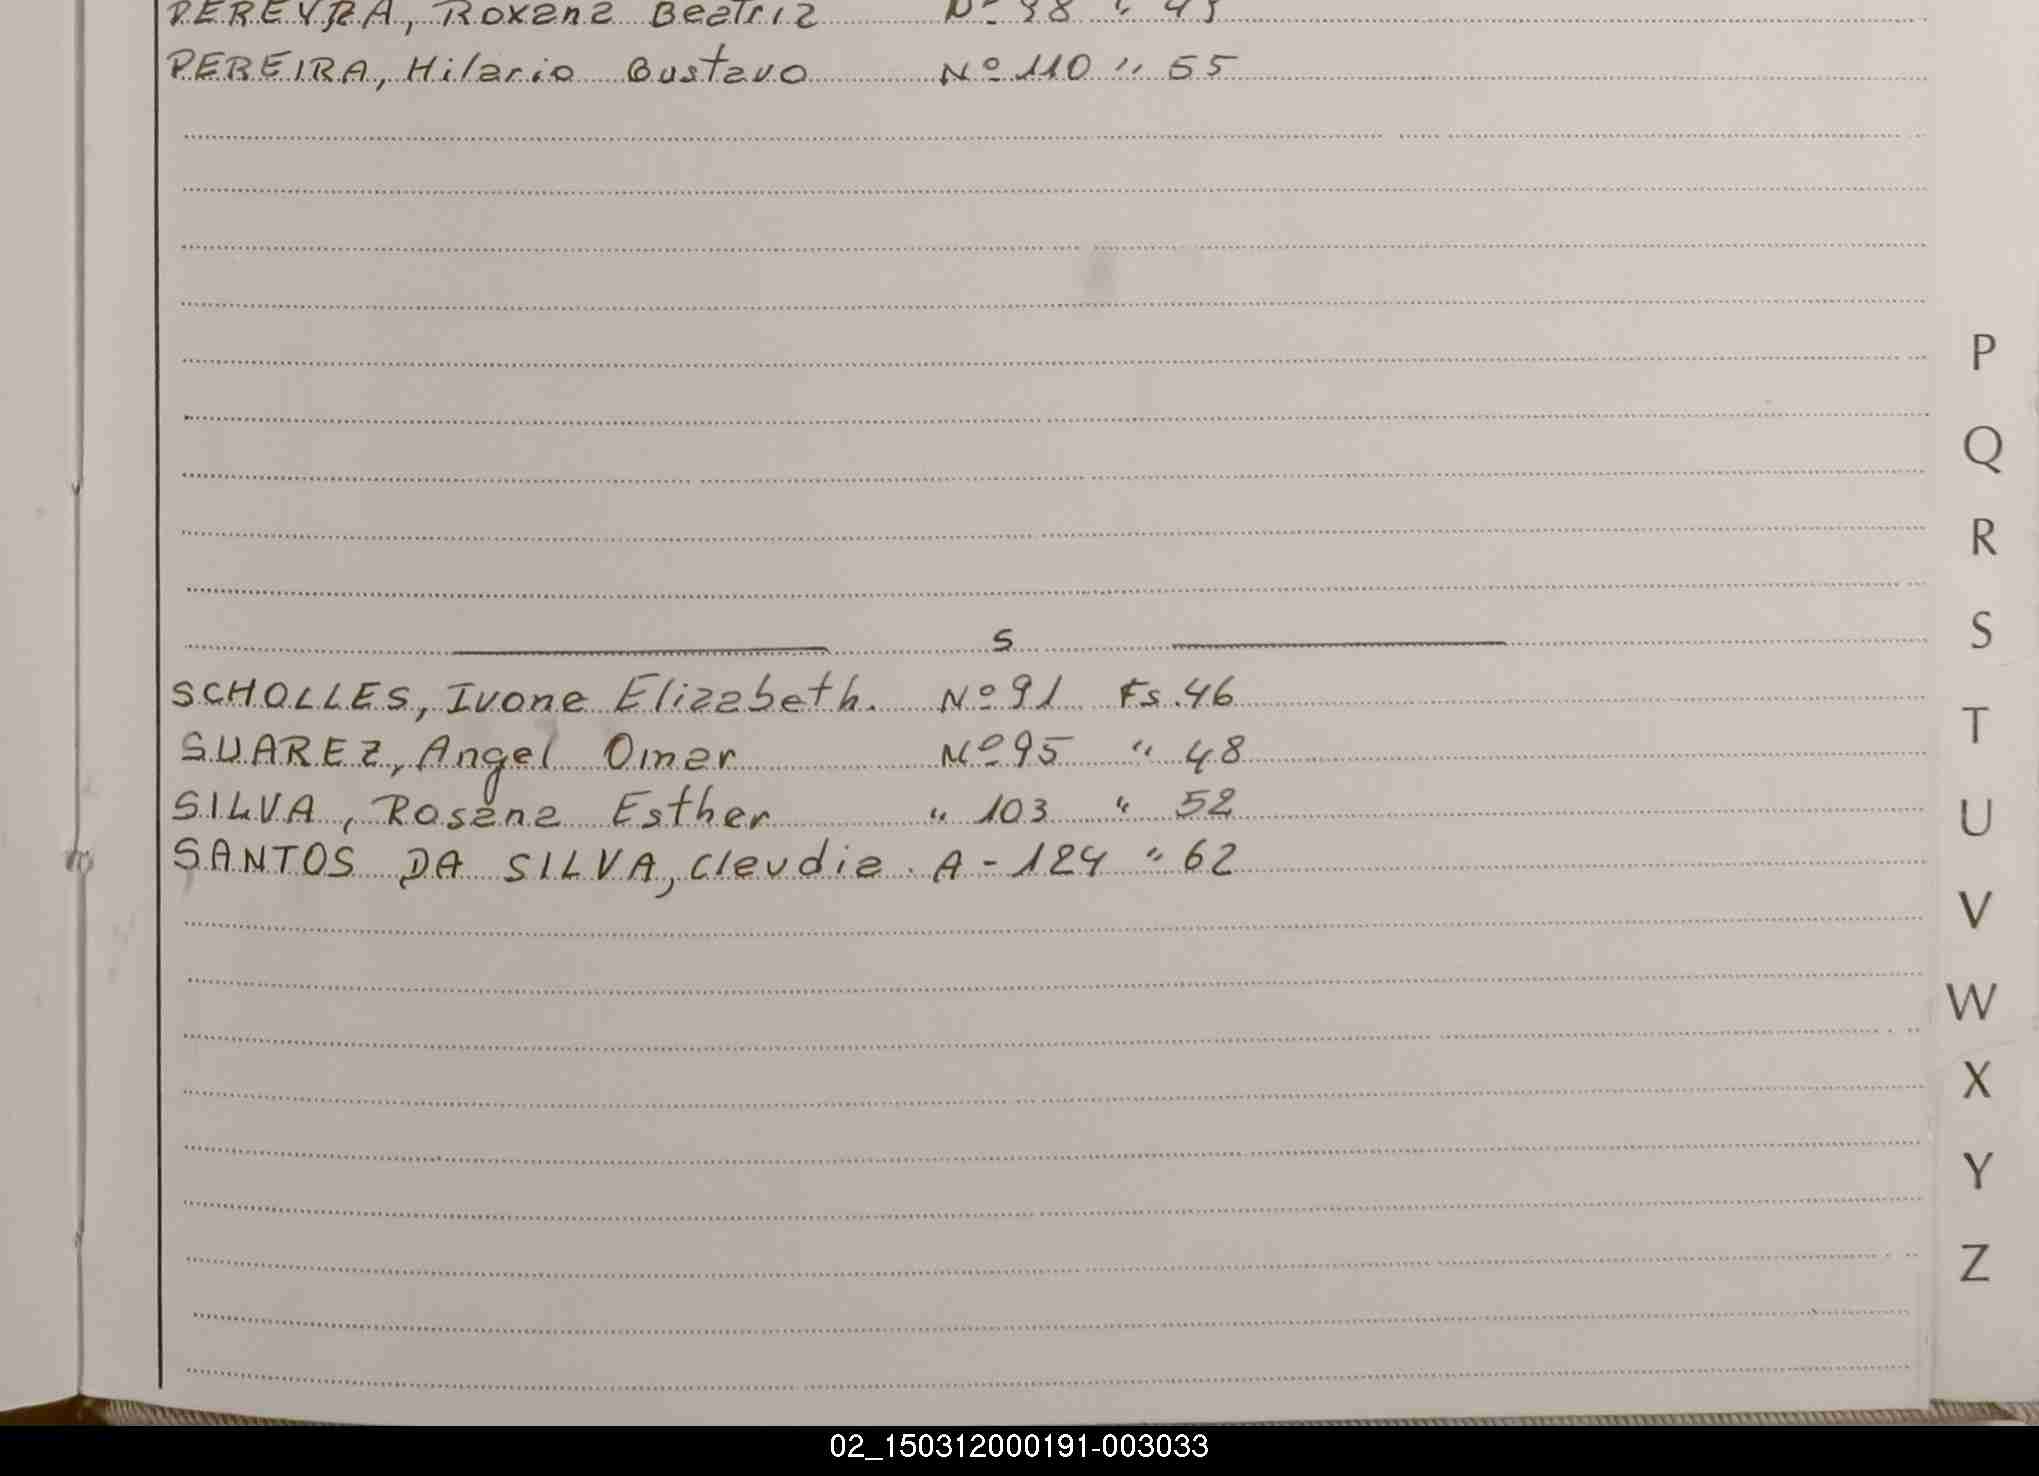 PEREYRA, Roxana Beatriz Nº 98 " 49
PEREIRA, Hilario Gustavo Nº 110 " 55
S
SCHOLLES, Ivone Elizabeth. Nº 91 Fs. 46
SUAREZ, Angel Omar Nº 95 " 48
SILVA, Rosana Esther " 103 " 52
SANTOS DA SILVA, Claudia. A - 124 " 62
P
Q
R
S
T
U
V
W
X
Y
Z
02_150312000191-003033